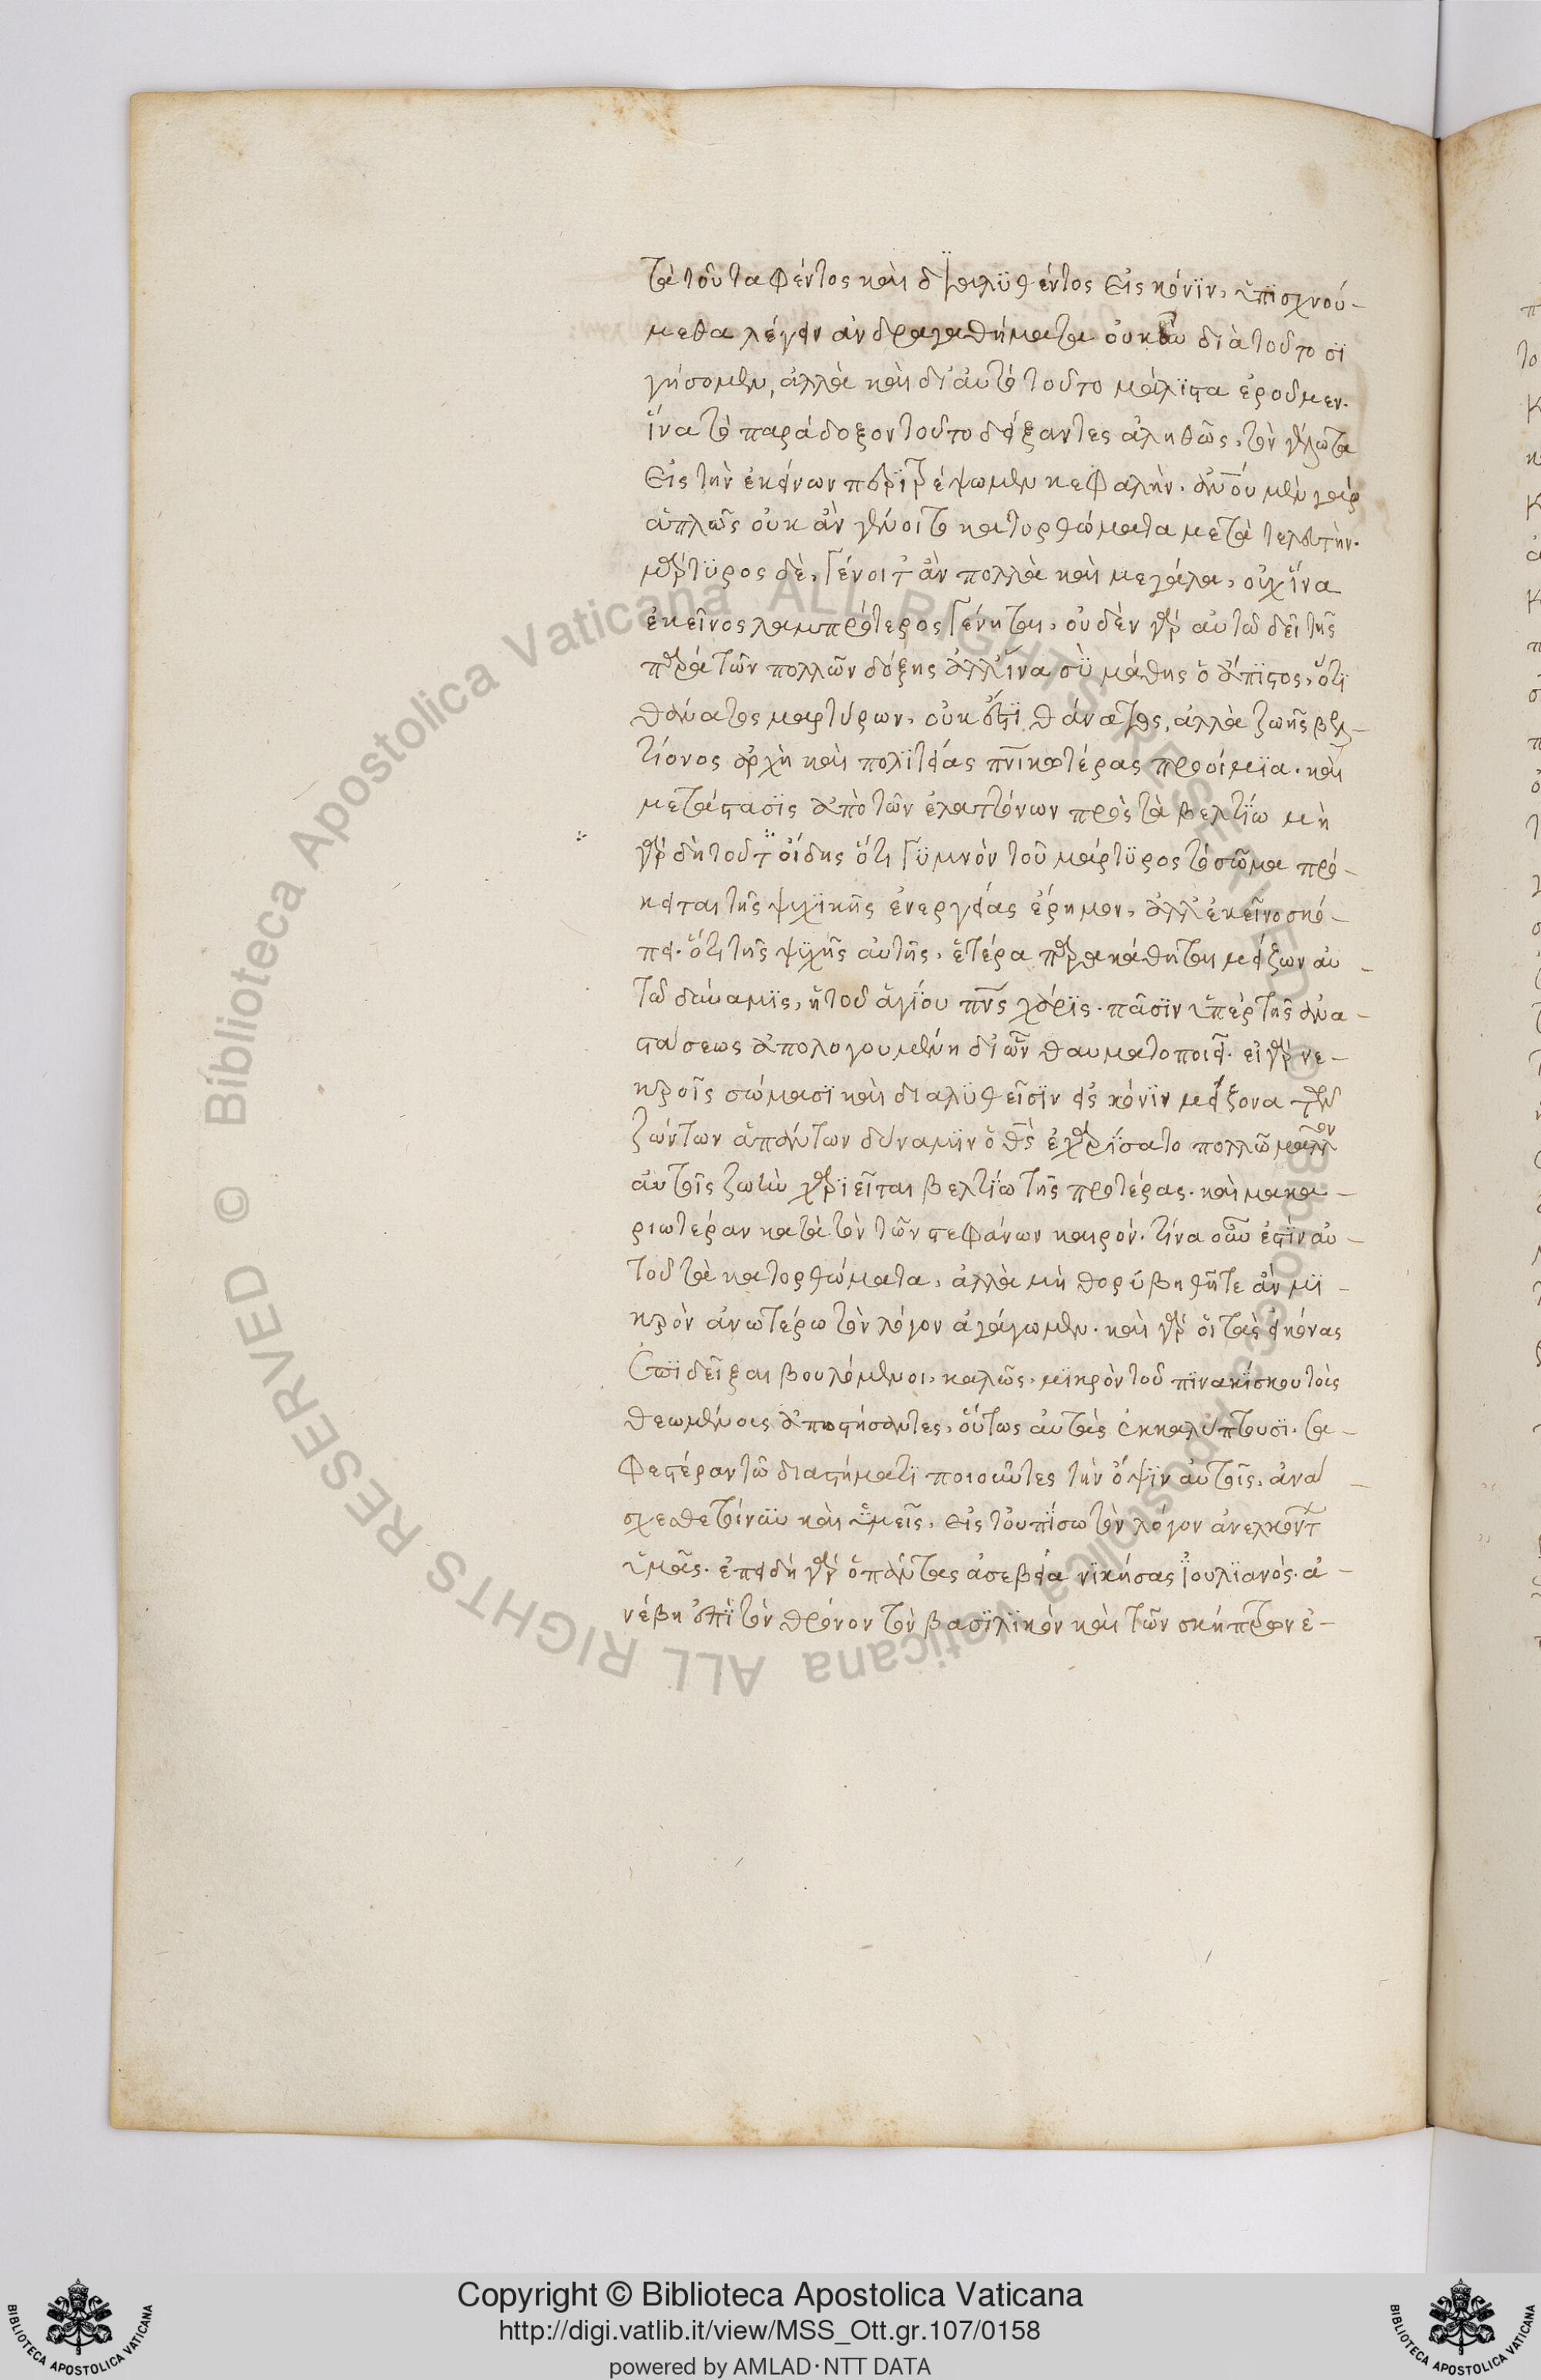 τὰ τοῦ ταφέντος καὶ διαλϋθέντος εἰς κόνϊν, ὑπϊσχνού-
μεθα λέγειν ἀνδραγαθήματα οὐκοῦν διὰ τοῦτο σϊ
γήσομεν, ἀλλὰ καὶ δι' αὐτὸ τοῦτο μάλϊστα ἐροῦμεν.
ἵνα τὸ παράδοξον τοῦτο δείξαντες ἀληθῶς, τὸν γέλωτα
εἰς τὴν ἐκείνων περϊτρέψωμεν κεφαλήν. ἀνοῦ μὲν γὰρ
ἁπλῶς οὐκ ἂν γένοιτο κατορθώματα μετὰ τελευτήν.
μάρτϋρος δὲ, γένοιτ' ἂν πολλὰ καὶ μεγάλα, οὐχ ἵνα
ἐκεῖνος λαμπρότερος γένηται, οὐδὲν γὰρ αὐτῶ δεῖ τῆς
παρὰ τῶν πολλῶν δόξης ἀλλ' ἵνα σϋ μάθης ὁ ἄπϊστος, ὅτϊ
θάνατος μαρτύρων, οὐκ ἔστϊ θάνατος, ἀλλὰ ζωῆς βελ-
τίονος ἀρχὴ καὶ πολϊτείας πνικωτέρας προοίμϊα. καὶ
μετάστασϊς ἀπὸ τῶν ἐλαττόνων πρὸς τὰ βελτϊω μὴ
γὰρ δὴ τοῦτ' οἴδης ὅτι γϋμνὸν τοῦ μάρτϋρος τὸ σῶμα πρό-
κειται τῆς ψυχϊκῆς ἐνεργείας ἔρημον, ἀλλ' ἐκεῖνο σκό-
πει. ὅτι τῆς ψϋχῆς αὐτῆς, ἑτέρα παρακάθηται μείζων αὐ-
τῶ δύναμϊς, ἡ τοῦ ἁγϊου πνς χάρϊς. πᾶσϊν ὑπὲρ τῆς ἀνα-
στάσεως ἀπολογουμένη δι' ὧν θαυματοποιεῖ. εἰ γὰρ νε-
κροῖς σώμασϊ καὶ διαλϋθεῖσϊν εἰς κόνϊν μείξονα τῶν
ζώντων ἁπάντων δύναμϊν ὁ θς ἐχαρίσατο πολλῶ μᾶλλον
αὐτοῖς ζωὴν χαρϊεῖται βελτϊω τῆς προτέρας. καὶ μακα-
ριωτέραν κατὰ τὸν τῶν στεφάνων καιρόν. τίνα οὖν ἐστϊν αὐ-
τοῦ τὰ κατορθώματα, ἀλλὰ μὴ θορύβηθῆτε ἂν μϊ-
κρὸν ἀνωτέρω τὸν λόγον ἀγάγωμεν. καὶ γὰρ οἱ τὰς εἰκόνας
ἐπϊδεῖξαι βουλόμενοι, καλῶς, μϊκρὸν τοῦ πϊνακϊσκου τοὺς
θεωμένους ἀποστήσαντες, οὕτως αὐτὰς ἐκκαλύπτουσϊ. σα-
φεστέραν τῶ διαστήματϊ ποιοῦντες τὴν ὄψϊν αὐτοῖς, ἀνά-
σχεσθε τοίνϋν καὶ ὑμεῖς, εἰς τοὐπϊσω τὸν λόγον ἀνελκοντ
ὑμᾶς. ἐπειδὴ γὰρ ὁ πάντας ἀσεβεία νϊκήσας Ϊουλϊανὸς. ἀ-
νέβη ἐπὶ τὸν θρόνον τὸν βασϊλϊκὸν καὶ τῶν σκήπτρων ἐ-
Copyright © Biblioteca Apostolica Vaticana
http://digi.vatlib.it/view/MSS_Ott.gr.107/0158
powered by AMLAD·NTT DATA
BIBLIOTECA APOSTOLICA VATICANA
BIBLIOTECA APOSTOLICA VATICANA
© Biblioteca Apostolica Vaticana ALL RIGHTS RESERVED
© Biblioteca Apostolica Vaticana ALL RIGHTS RESERVED